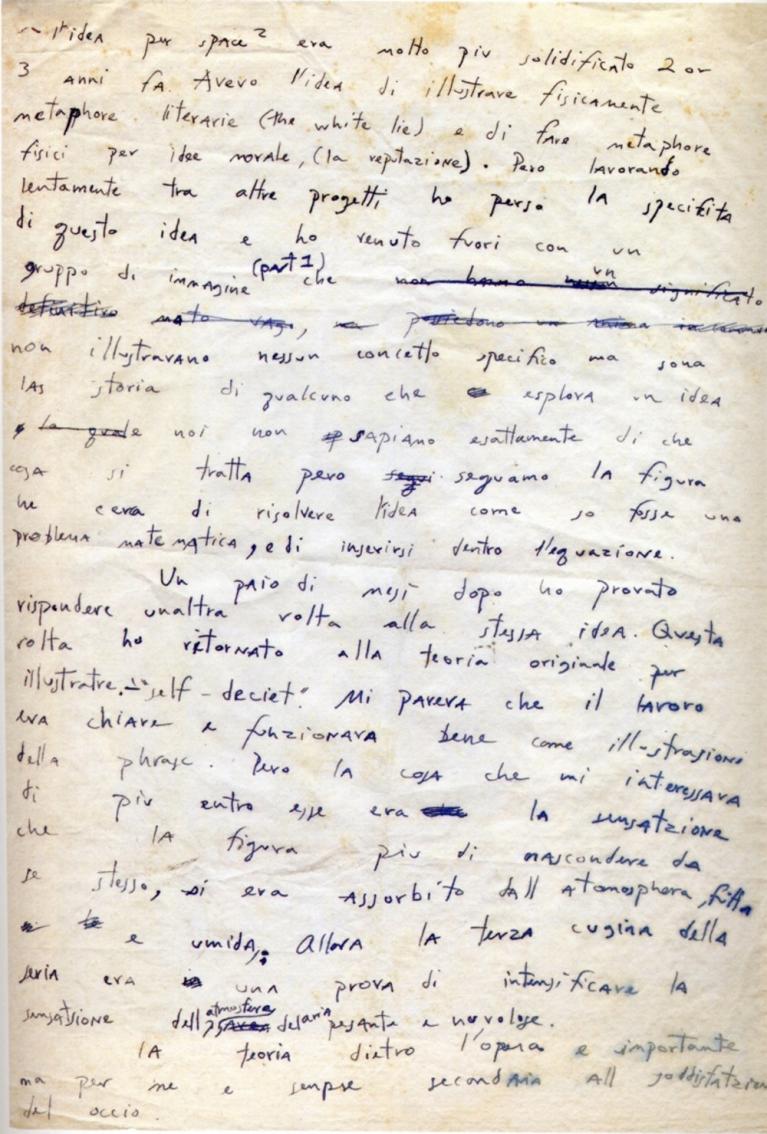 l'idea per space² era molto piu solidificato 2 or
3 anni fa. Avevo l'idea di illustrare fisicamente
metaphore literarie (the white lie) e di fare metaphore
fisici per idee morale, (la reputazione). Pero lavorando
lentamente tra altre progetti ho perso la specifita
di questo idea e ho venuto fuori con un
gruppo di immagine (part 1) che non hanno un significato
definitivo molto vago, posiedono un
non illustravano nessun concetto specifico ma sona
las storia di qualcuno che esplora un idea
la quale noi non sapiamo esattamente di che
cosa si tratta pero segui seguamo la figura
he cera di risolvere l'idea come so fosse una
problema matematica, e di inserirsi dentro l'equazione.
Un paio di mesi dopo ho provato
rispondere unaltra volta alla stessa idea. Questa
volta ho ritornato alla teoria originale per
illustratre - "self-deciet." Mi pareva che il lavoro
era chiare e funzionava bene come illustrazione
della phrase. Pero la cosa che mi interessava
di piu entro esse era che la sensatzione
che la figura piu di nascondere da
se stesso, si era assorbito dall atomosphera, fitta
e umida; Allora la terza cugina della
seria era una prova di intensificare la
sensatsione dell atmosfera del aria pesante e nuvolose.
la teoria dietro l'opera e importante
ma per me e sempre secondaia all soddisfatzion
del occio.